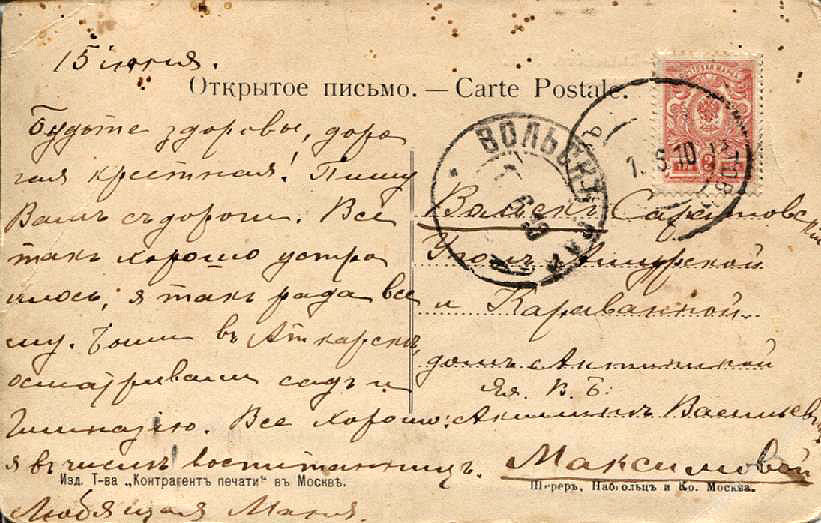 15 июня.
Открытое письмо. — Carte Postale.
Будьте здоровы, доро
гая крестная! Пишу
Вамъ съ дороги. Все
такъ хорошо устро
илось, я такъ рада все
му. Были въ Аткарскѣ,
осматривали садъ и
гимназiю. Все хорошо:
я въ числѣ воспитанницъ.
Любящая Мария.
ВОЛЬСКЪ
7. 6 10
Вольскъ Саратовс
кой
г.
Уголъ Амурской
и Караванной
домъ
Ея В. Б.
Васильев
Максимовой
Изд. Т-ва „Контрагентъ печати" въ Москвѣ.
Шереръ, Набгольцъ и Ко. Москва.